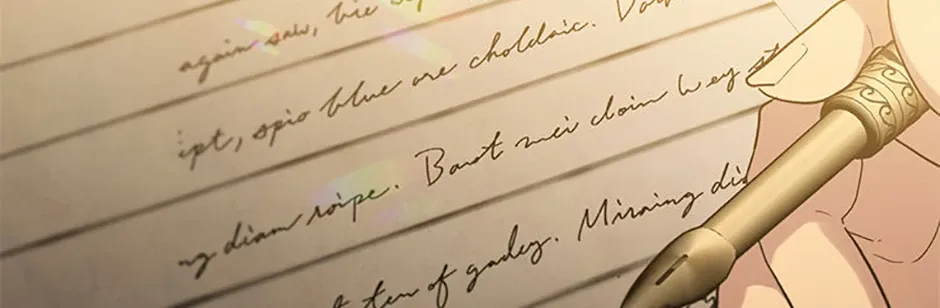 again saw, bie
ipt, spio blue are choldaic.
ng diam roipe. Baut mei cloin wey
ten of gadey. Miraing